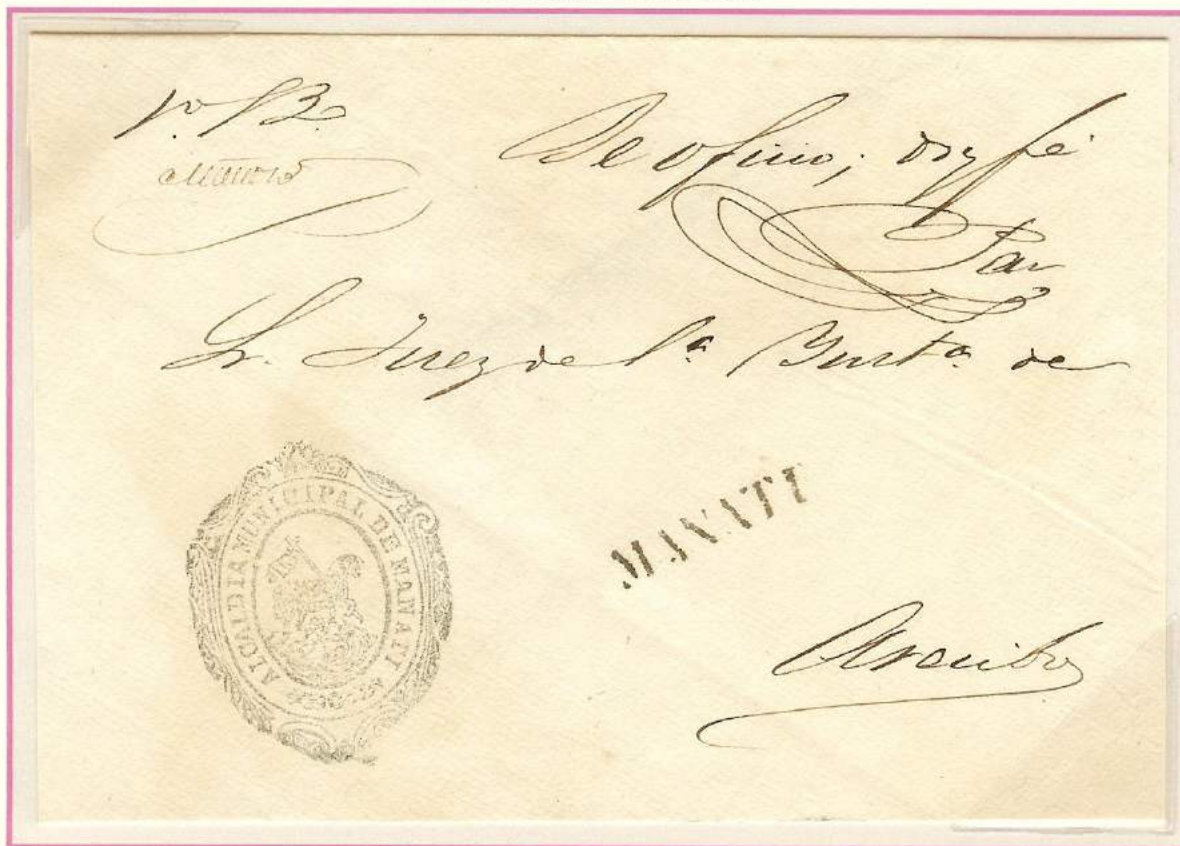 De oficio; doy fé
Sr. Juez de 1ª Insta. de
ALCALDIA MUNICIPAL DE MANATI
MANATI
Arecibo